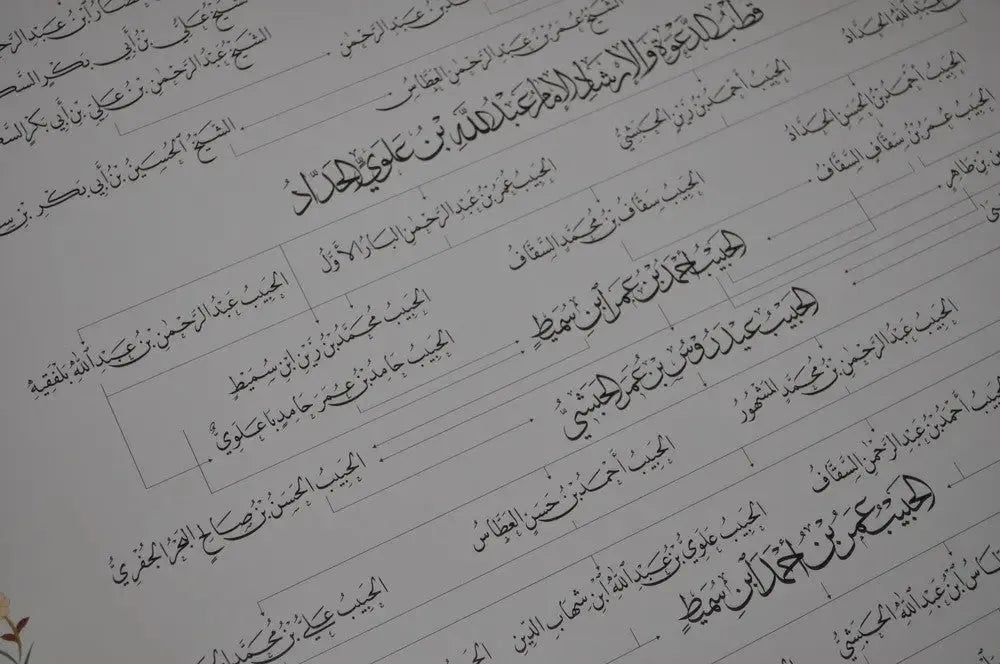 الشيخ علي بن أبي بكر
الشيخ عبد الرحمن بن علي بن أبي بكر
بن عبد الرحمن
الشيخ عمر بن عبد الرحمن العطاس
الشيخ الحسين بن أبي بكر بن
قطب الدعوة والإرشاد الإمام عبد الله بن علوي الحداد
عبد الله الحداد
الحبيب أحمد بن زين الحبشي
الحبيب أحمد بن الحسن الحداد
الحبيب عمر بن عبد الرحمن البار الأول
الحبيب سقاف بن محمد السقاف
الحبيب عمر بن سقاف السقاف
بن طاهر
الحبيب عبد الرحمن بن عبد الله بلفقيه
الحبيب محمد بن زين ابن سميط
الحبيب أحمد بن عمر ابن سميط
الحبيب حامد بن عمر حامد باعلوي
الحبيب عيدروس بن عمر الحبشي
الحبيب الحسن بن صالح البحر الجفري
الحبيب عبد الرحمن بن محمد المشهور
الحبيب أحمد بن حسن العطاس
الحبيب أحمد بن عبد الرحمن السقاف
الحبيب علوي بن عبد الله ابن شهاب الدين
الحبيب عمر بن أحمد ابن سميط
الحبيب علي بن محمد
بن عبد الله الحبشي